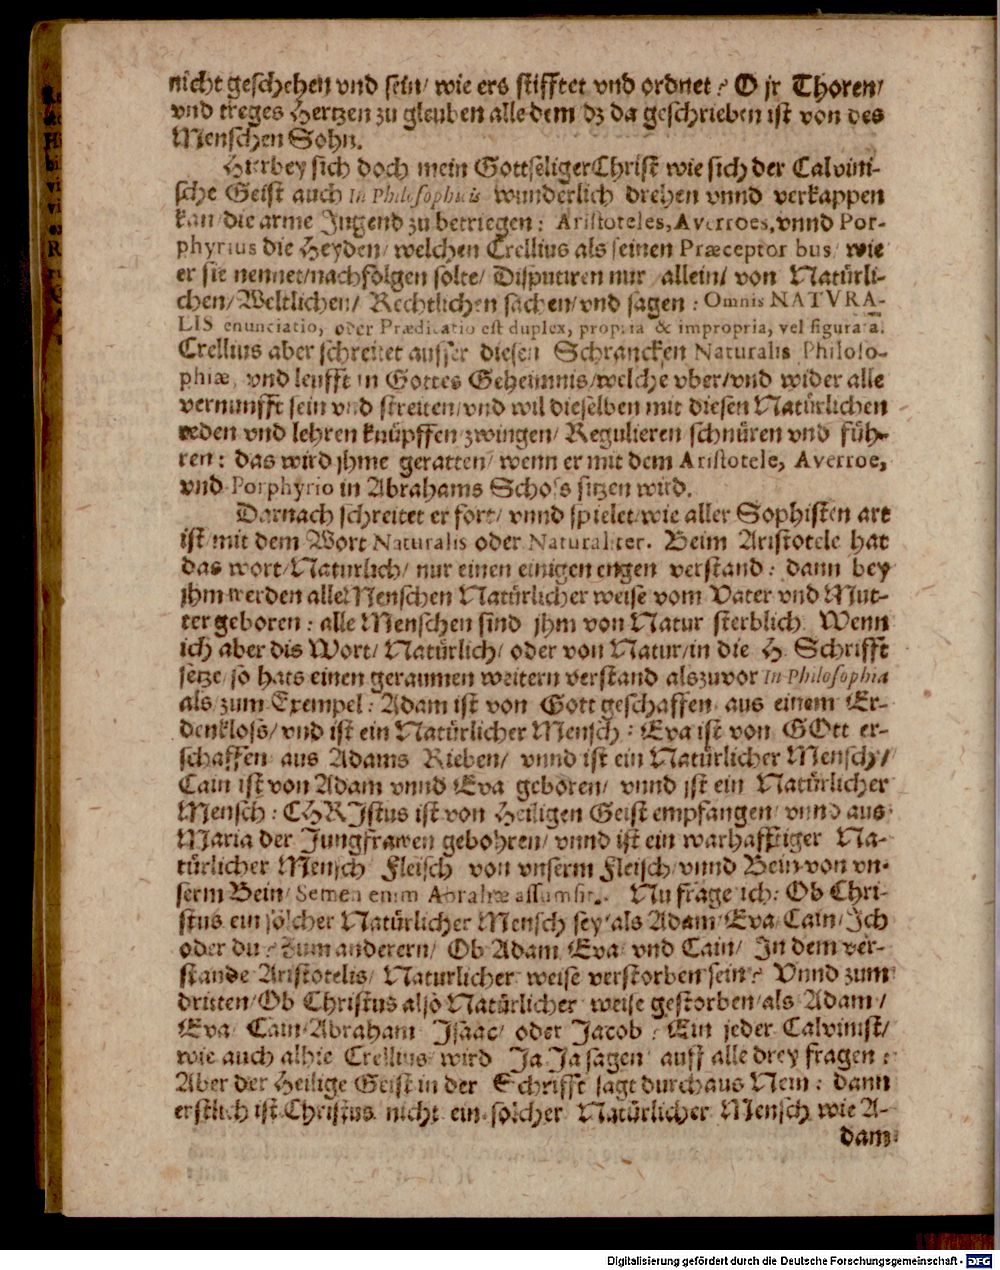 nicht geschehen vnd sein/ wie ers stifftet vnd ordnet? O jr Thoren/
vnd treges Hertzen zu gleuben alle dem dz da geschrieben ist von des
Menschen Sohn.
Hierbey sich doch mein Gottseliger Christ wie sich der Calvini-
sche Geist auch In Philosophicis wunderlich drehen vnnd verkappen
kan/ die arme Jugend zu betriegen: Aristoteles, Averroes, vnnd Por-
phyrius die Heyden/ welchen Crellius als seinen Præceptoribus/ wie
er sie nennet/ nachfolgen solte/ Disputiren nur allein/ von Natürli-
chen/ Weltlichen/ Rechtlichen sachen/ vnd sagen: Omnis NATVRA-
LIS enunciatio, oder Prædicatio est duplex, propria & impropria, vel figurata.
Crellius aber schreitet ausser diesen Schrancken Naturalis Philoso-
phiæ, vnd leufft in Gottes Geheimnis/ welche vber/ vnd wider alle
vernunfft sein vnd streiten/ vnd wil dieselben mit diesen Natürlichen
reden vnd lehren knüpffen zwingen/ Regulieren schnüren vnd füh-
ren: das wird jhme geratten/ wenn er mit dem Aristotele, Averroe,
vnd Porphyrio in Abrahams Schoss sitzen wird.
Darnach schreitet er fort/ vnnd spielet/ wie aller Sophisten art
ist/ mit dem Wort Naturalis oder Naturaliter. Beim Aristotele hat
das wort/ Natürlich/ nur einen einigen engen verstand: dann bey
jhm werden alle Menschen Natürlicher weise vom Vater vnd Mut-
ter geboren: alle Menschen sind jhm von Natur sterblich. Wenn
ich aber dis Wort/ Natürlich/ oder von Natur/ in die H. Schrifft
setze/ so hats einen geraumen weitern verstand als zuvor In Philosophia
als/ zum Exempel: Adam ist von Gott geschaffen aus einem Er-
denkloss/ vnd ist ein Natürlicher Mensch: Eva ist von GOtt er-
schaffen aus Adams Rieben/ vnnd ist ein Natürlicher Mensch/
Cain ist von Adam vnnd Eva geboren/ vnnd jst ein Natürlicher
Mensch: CHRJstus ist von Heiligen Geist empfangen/ vnnd aus
Maria der Jungfrawen gebohren/ vnnd ist ein warhafftiger Na-
türlicher Mensch Fleisch von vnserm Fleisch/ vnnd Bein von vn-
serm Bein/ Semen enim Abrahæ assumsit. Nu frage ich: Ob Chri-
stus ein solcher Natürlicher Mensch sey/ als Adam/ Eva/ Cain/ Jch
oder du? Zum anderern/ Ob Adam/ Eva/ vnd Cain/ In dem ver-
stande Aristotelis/ Naturlicher weise verstorben sein? Vnnd zum
dritten/ Ob Christus also Natürlicher weise gestorben/ als Adam/
Eva/ Cain/ Abraham Jsaac/ oder Jacob? Ein jeder Calvinist/
wie auch alhie Crellius/ wird Ja Ja sagen auff alle drey fragen:
Aber der Heilige Geist in der Schrifft sagt durchaus Nein: dann
erstlich ist Christus nicht ein solcher Natürlicher Mensch wie A-
dam
Digitalisierung gefördert durch die Deutsche Forschungsgemeinschaft - DFG